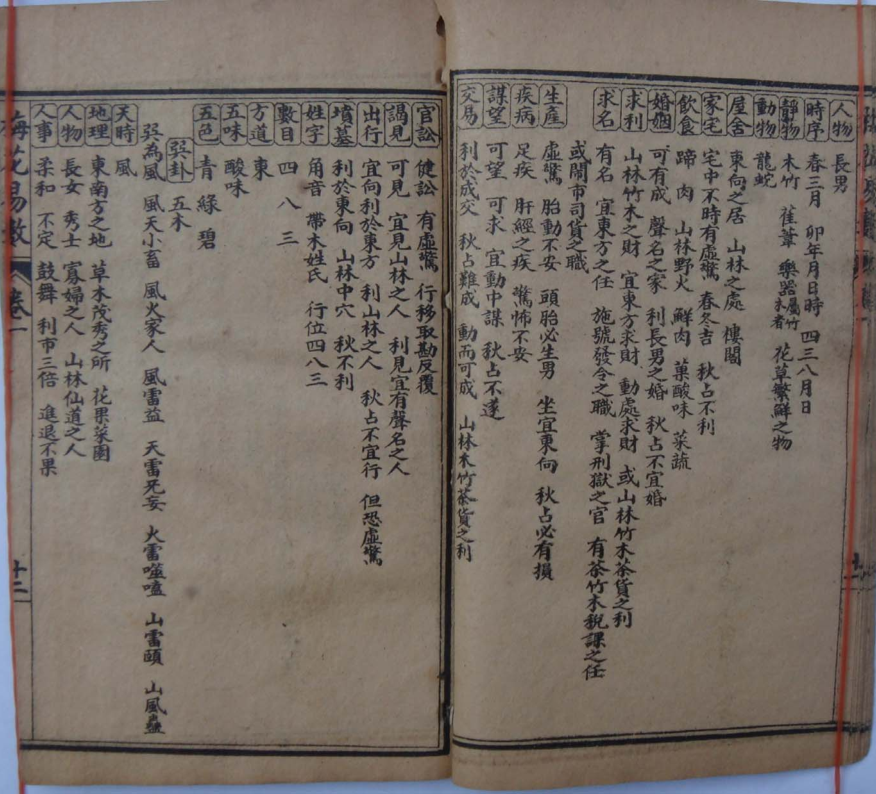 人物 長男
時序 春三月 卯年月日時 四三八月日
靜物 木竹 萑葦 樂器屬竹木者 花草繁鮮之物
動物 龍蛇
屋舍 東向之居 山林之處 樓閣
家宅 宅中不時有虛驚 春冬吉 秋占不利
飲食 蹄 肉 山林野火 鮮肉 菓酸味 菜蔬
婚姻 可有成 聲名之家 利長男之婚 秋占不宜婚
求利 山林竹木之財 宜東方求財 動處求財 或山林竹木茶貨之利
求名 有名 宜東方之任 施號發令之職 掌刑獄之官 有茶竹木稅課之任
或鬧市司貨之職
生產 虛驚 胎動不安 頭胎必生男 坐宜東向 秋占必有損
疾病 足疾 肝經之疾 驚怖不安
謀望 可望 可求 宜動中謀 秋占不遂
交易 利於成交 秋占難成 動而可成 山林木竹茶貨之利
官訟 健訟 有虛驚 行移取勘反覆
謁見 可見 宜見山林之人 利見宜有聲名之人
出行 宜向利於東方 利山林之人 秋占不宜行 但恐虛驚
墳墓 利於東向 山林中穴 秋不利
姓字 角音 帶木姓氏 行位四八三
數目 四 八 三
方道 東
五味 酸味
五色 青 綠 碧
巽卦 五木
巽為風 風天小畜 風火家人 風雷益 天雷旡妄 火雷噬嗑 山雷頤 山風蠱
天時 風
地理 東南方之地 草木茂秀之所 花果菜園
人物 長女 秀士 寡婦之人 山林仙道之人
人事 柔和 不定 鼓舞 利市三倍 進退不果
梅花易數 卷一 十二